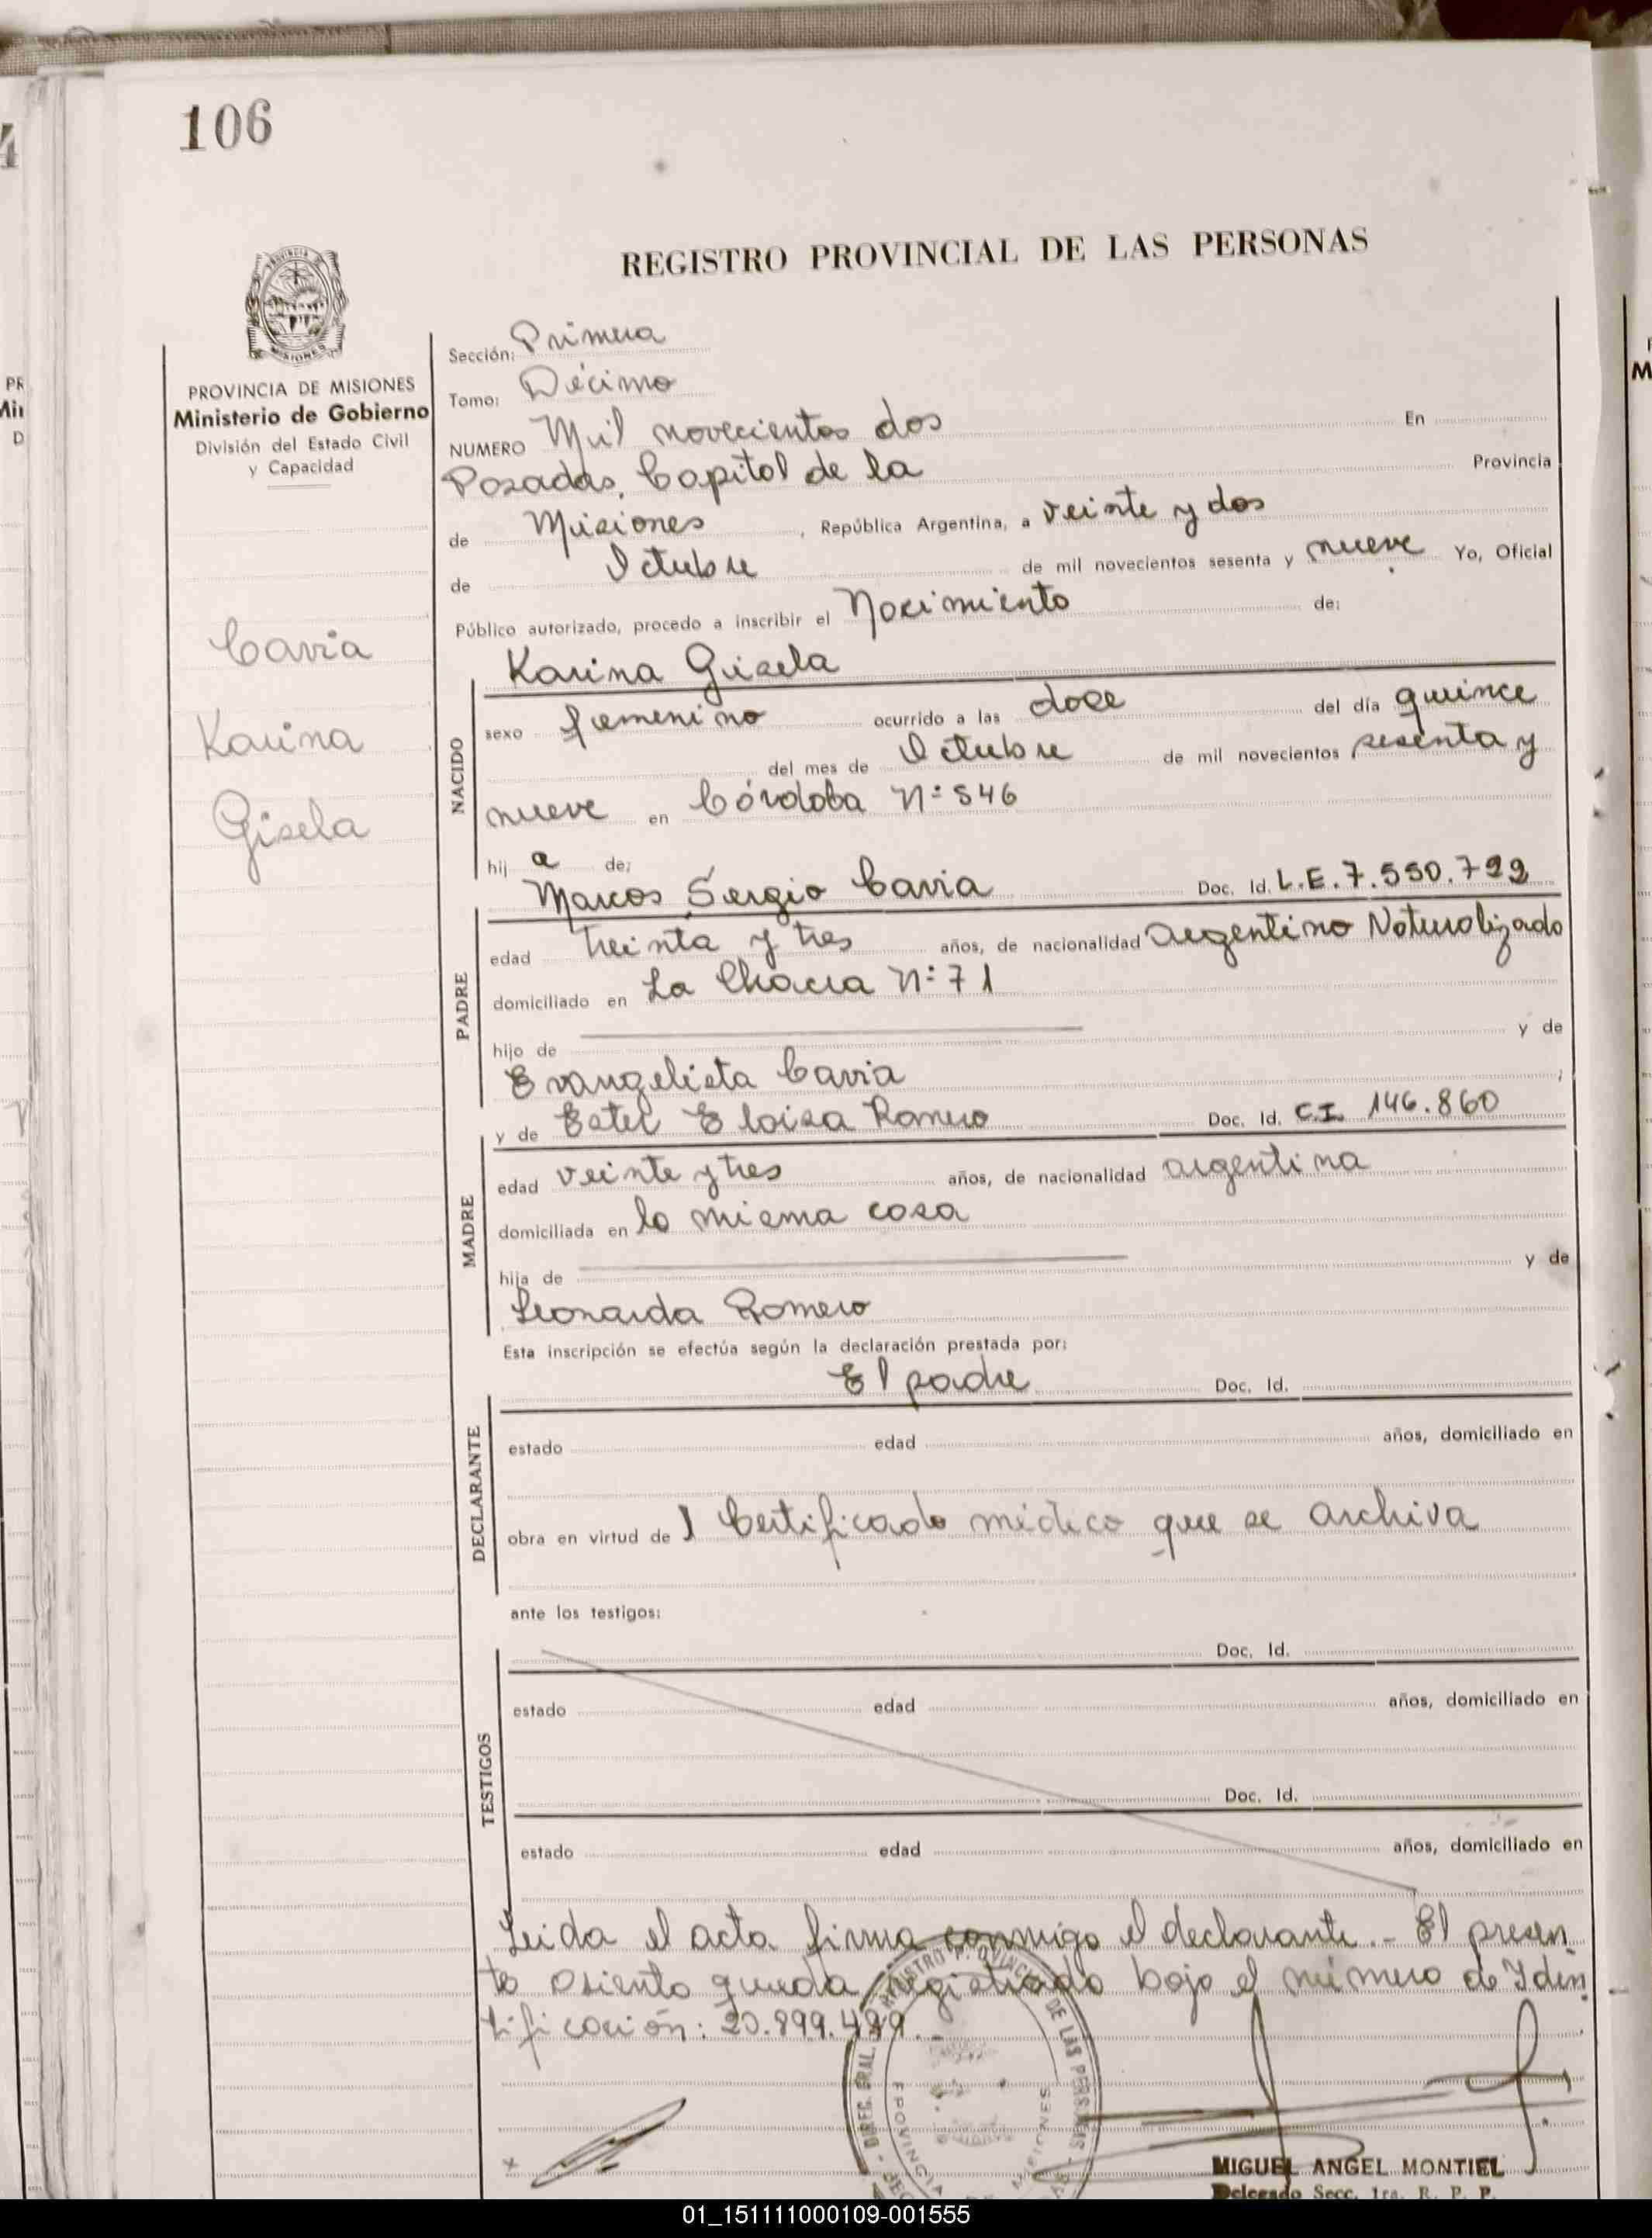 106
REGISTRO PROVINCIAL DE LAS PERSONAS
PROVINCIA DE MISIONES
Ministerio de Gobierno
División del Estado Civil
y Capacidad
Cavia
Karina
Gisela
Sección: Primera
Tomo: Décimo
NUMERO Mil novecientos dos En
Posadas, Capital de la Provincia
de Misiones, República Argentina, a veinte y dos
de Octubre de mil novecientos sesenta y nueve Yo, Oficial
Público autorizado, procedo a inscribir el Nacimiento de:
NACIDO
Karina Gisela
sexo femenino ocurrido a las doce del día quince
del mes de Octubre de mil novecientos sesenta y
nueve en Córdoba Nº 546
hij a de:
PADRE
Marcos Sergio Cavia Doc. Id. L.E. 7.550.799
edad treinta y tres años, de nacionalidad argentino Naturalizado
domiciliado en La Chacra Nº 71
hijo de y de
Evangelista Cavia ;
MADRE
y de Estel Eloisa Romero Doc. Id. C.I. 146.860
edad veinte y tres años, de nacionalidad argentina
domiciliada en la misma casa
hija de y de
Leonarda Romero
Esta inscripción se efectúa según la declaración prestada por:
DECLARANTE
El padre Doc. Id.
estado edad años, domiciliado en
obra en virtud de 1 Certificado médico que se archiva
ante los testigos:
TESTIGOS
Doc. Id.
estado edad años, domiciliado en
Doc. Id.
estado edad años, domiciliado en
Leida el acta firma conmigo el declarante.- El presen
te asiento queda registrado bajo el número de Iden
tificación: 20.899.499.
DIREC. GRAL. REGISTRO PROVINCIAL DE LAS PERSONAS
PROVINCIA MISIONES
MIGUEL ANGEL MONTIEL
Delegado Secc. 1ra. R. P. P.
01_151111000109-001555